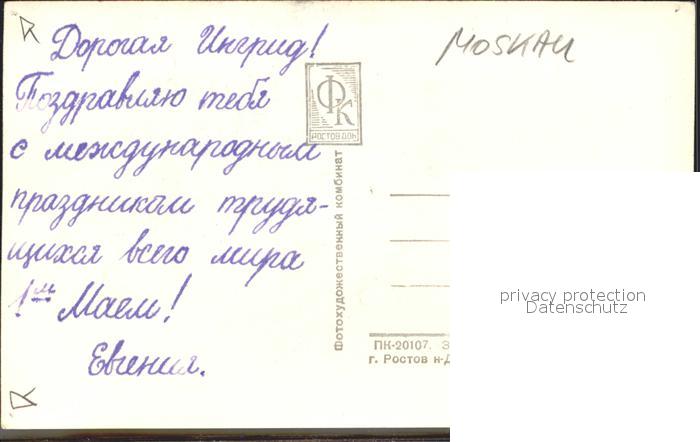 Дорогая Ингрид!
Поздравляю тебя
с международным
праздником трудя-
щихся всего мира
1ым Маем!
Евгения.
MOSKAU
ФК
РОСТОВ ДОН
Фотохудожественный комбинат
ПК-20107. З
г. Ростов н-Д
privacy protection
Datenschutz